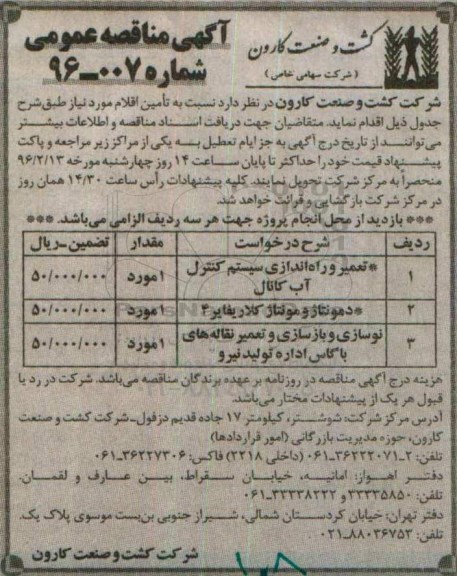 کشت و صنعت کارون
( شرکت سهامی خاص )
آگهی مناقصه عمومی
شماره ۰۰۷-۹۶
شرکت کشت و صنعت کارون در نظر دارد نسبت به تأمین اقلام مورد نیاز طبق شرح
جدول ذیل اقدام نماید. متقاضیان جهت دریافت اسناد مناقصه و اطلاعات بیشتر
می‌توانند از تاریخ درج آگهی به جز ایام تعطیل به یکی از مراکز زیر مراجعه و پاکت
پیشنهاد قیمت خود را حداکثر تا پایان ساعت ۱۴ روز چهارشنبه مورخه ۹۶/۲/۱۳
منحصراً به مرکز شرکت تحویل نمایند. کلیه پیشنهادات رأس ساعت ۱۴/۳۰ همان روز
در مرکز شرکت بازگشایی و قرائت خواهد شد.
*** بازدید از محل انجام پروژه جهت هر سه ردیف الزامی می‌باشد. ***
ردیف شرح درخواست مقدار تضمین-ریال
۱ *تعمیر و راه‌اندازی سیستم کنترل آب کانال ۱مورد ۵۰/۰۰۰/۰۰۰
۲ *دمونتاژ و مونتاژ کلاریفایر۴ ۱مورد ۵۰/۰۰۰/۰۰۰
۳ نوسازی و بازسازی و تعمیر نقاله‌های باگاس اداره تولید نیرو* ۱مورد ۵۰/۰۰۰/۰۰۰
هزینه درج آگهی مناقصه در روزنامه بر عهده برندگان مناقصه می‌باشد. شرکت در رد یا
قبول هر یک از پیشنهادات مختار می‌باشد.
آدرس مرکز شرکت: شوشتر، کیلومتر ۱۷ جاده قدیم دزفول-شرکت کشت و صنعت
کارون، حوزه مدیریت بازرگانی (امور قراردادها)
تلفن: ۲-۳۶۲۲۲۰۷۱-۰۶۱ (داخلی ۲۲۱۸) فاکس: ۳۶۲۲۷۳۰۶-۰۶۱
دفتر اهواز: امانیه، خیابان سقراط، بین عارف و لقمان.
تلفن: ۳۳۳۳۵۸۵۰ و ۳۳۳۳۸۲۲۲-۰۶۱
دفتر تهران: خیابان کردستان شمالی، شیراز جنوبی بن‌بست موسوی پلاک یک.
تلفن: ۸۸۰۳۶۷۵۳-۰۲۱
شرکت کشت و صنعت کارون
۱۰۸